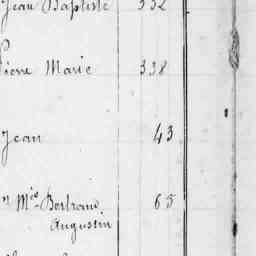 Jean Baptiste 332
Pierre Marie 338
Jean 43
Mie Bertrand 65
Augustin